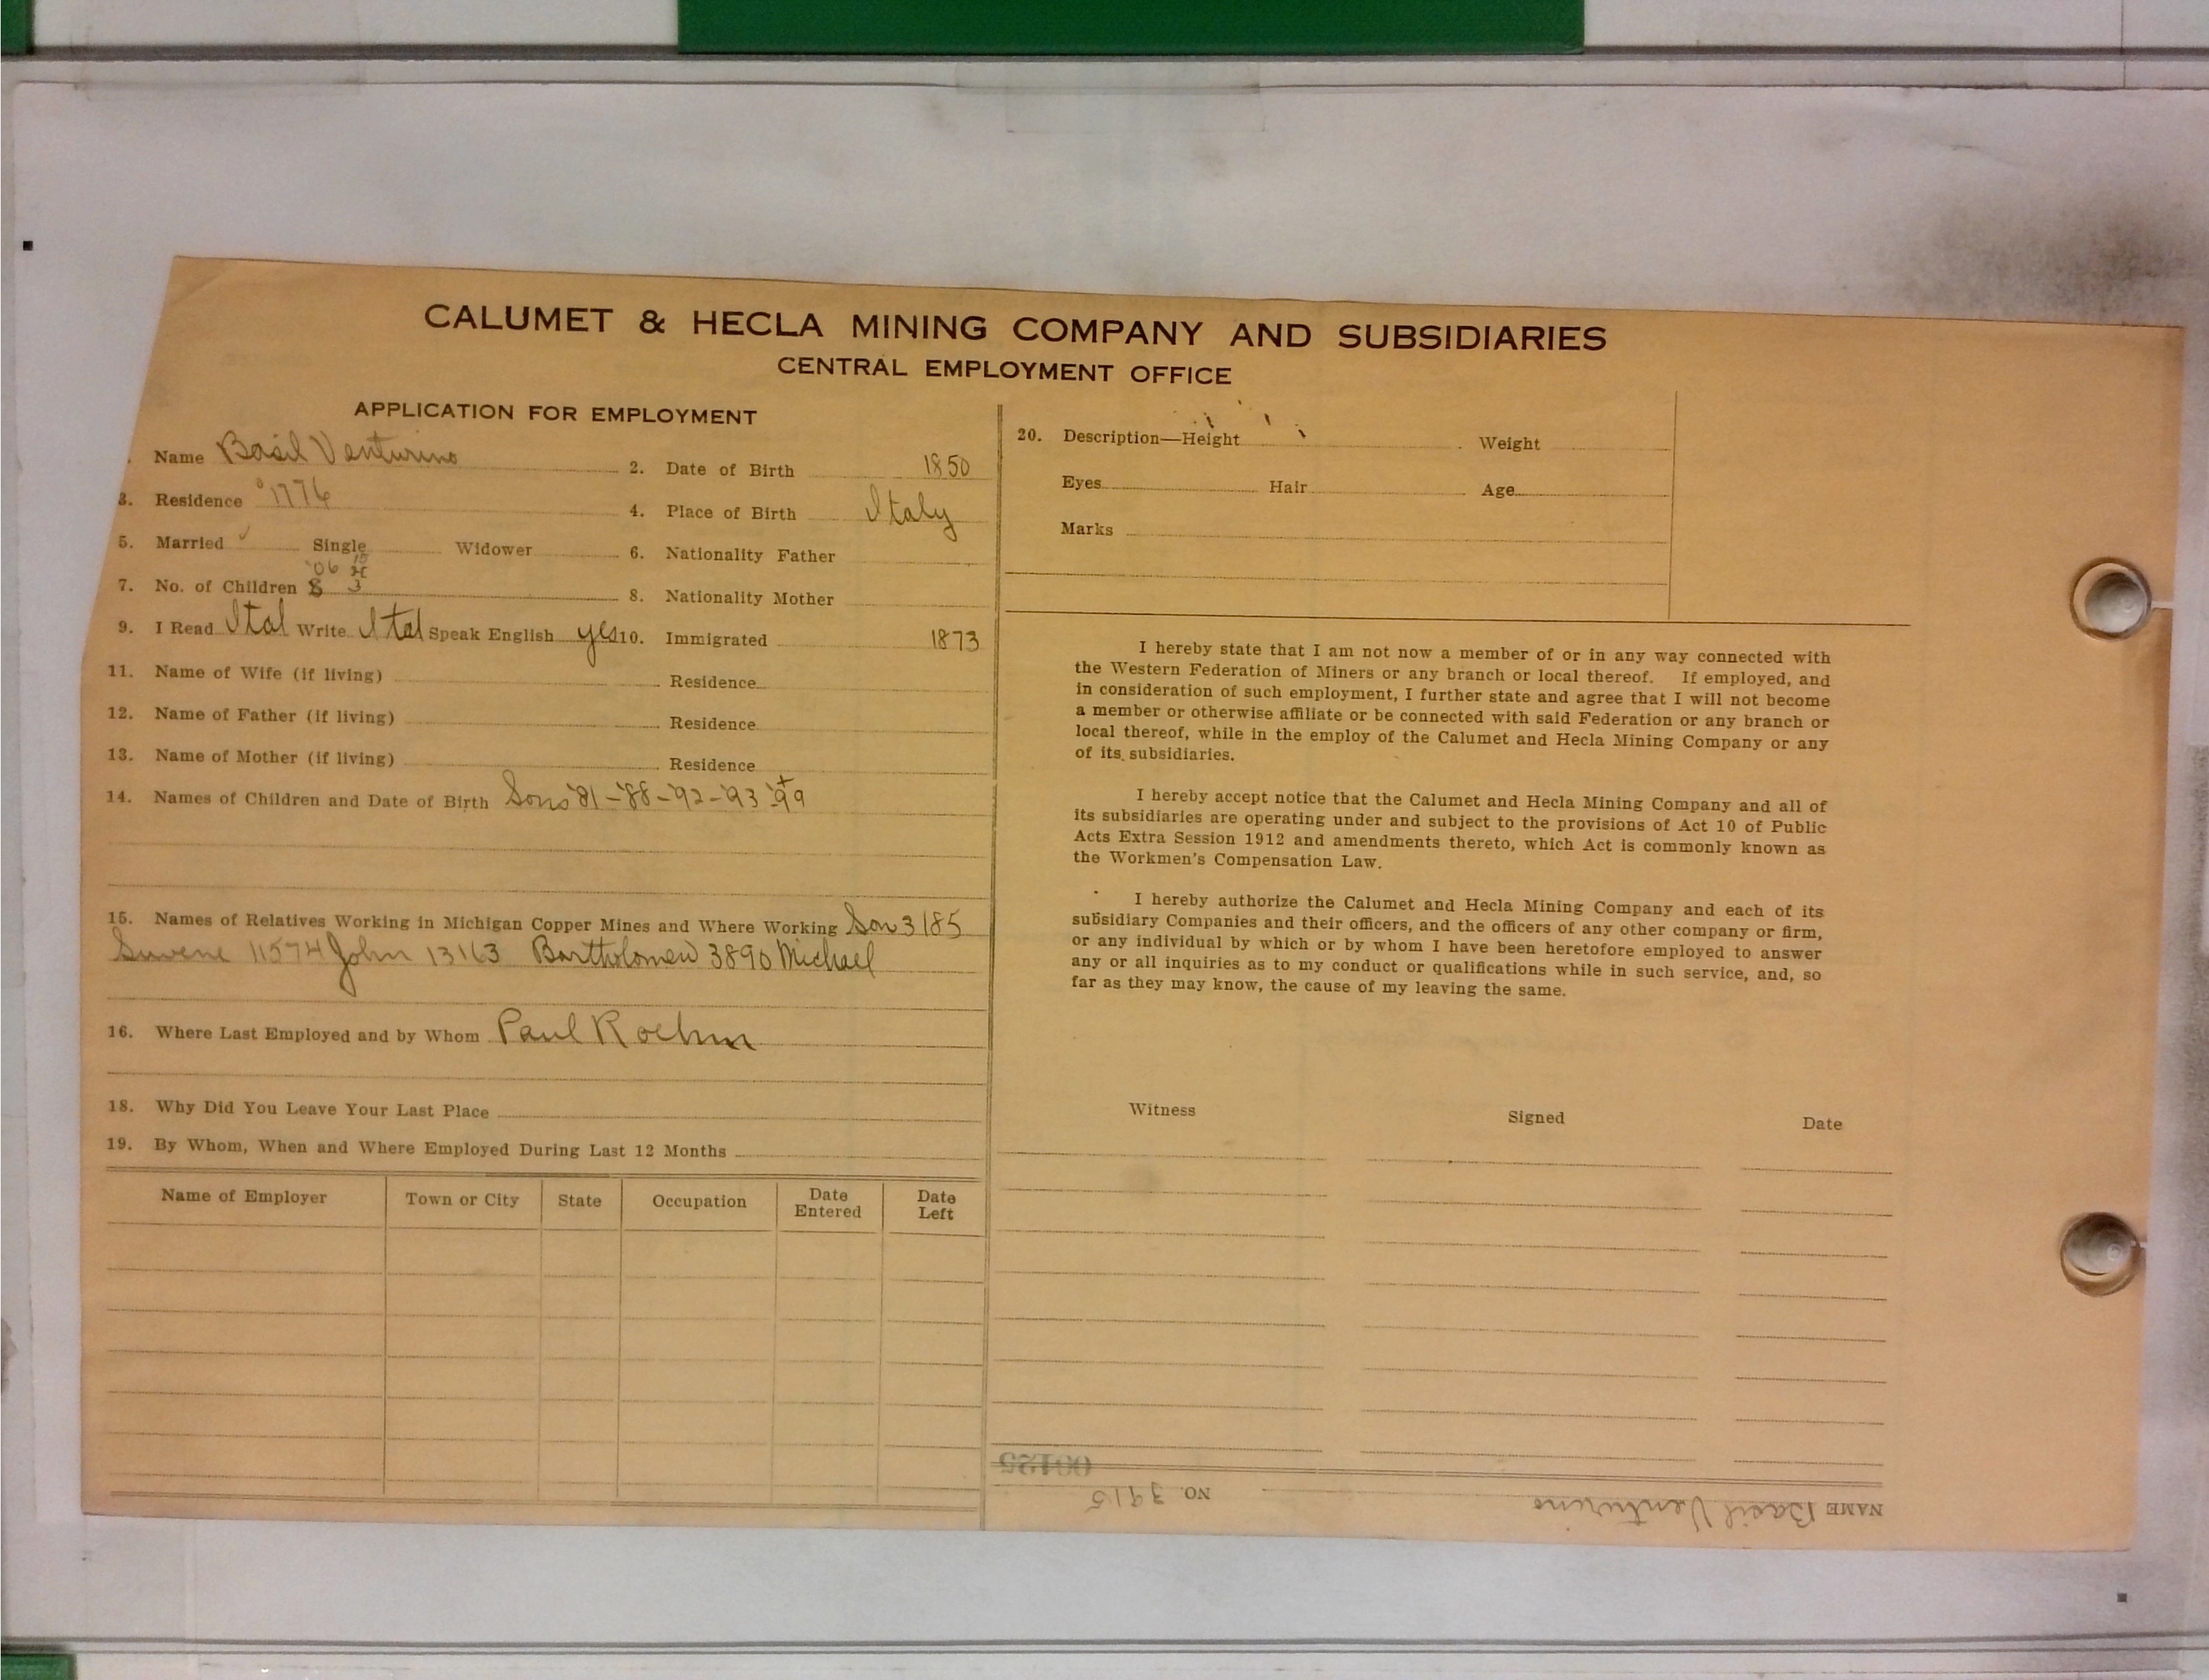 CALUMET & HECLA MINING COMPANY AND SUBSIDIARIES
CENTRAL EMPLOYMENT OFFICE
APPLICATION FOR EMPLOYMENT
Name Basil Venturino 2. Date of Birth 1850
3. Residence 1776 4. Place of Birth Italy
5. Married ✓ Single Widower 6. Nationality Father
'06 15
7. No. of Children 8 3 8. Nationality Mother
9. I Read Ital Write Ital Speak English yes 10. Immigrated 1873
11. Name of Wife (if living) Residence
12. Name of Father (if living) Residence
13. Name of Mother (if living) Residence
14. Names of Children and Date of Birth Sons '81-'88-'92-'93 '99
15. Names of Relatives Working in Michigan Copper Mines and Where Working Son 3185
11574 John 13163 Bartholomew 3890 Michael
16. Where Last Employed and by Whom Paul Roehm
18. Why Did You Leave Your Last Place
19. By Whom, When and Where Employed During Last 12 Months
Name of Employer Town or City State Occupation Date Entered Date Left
20. Description—Height Weight
Eyes Hair Age
Marks
I hereby state that I am not now a member of or in any way connected with
the Western Federation of Miners or any branch or local thereof. If employed, and
in consideration of such employment, I further state and agree that I will not become
a member or otherwise affiliate or be connected with said Federation or any branch or
local thereof, while in the employ of the Calumet and Hecla Mining Company or any
of its subsidiaries.
I hereby accept notice that the Calumet and Hecla Mining Company and all of
its subsidiaries are operating under and subject to the provisions of Act 10 of Public
Acts Extra Session 1912 and amendments thereto, which Act is commonly known as
the Workmen's Compensation Law.
I hereby authorize the Calumet and Hecla Mining Company and each of its
subsidiary Companies and their officers, and the officers of any other company or firm,
or any individual by which or by whom I have been heretofore employed to answer
any or all inquiries as to my conduct or qualifications while in such service, and, so
far as they may know, the cause of my leaving the same.
Witness Signed Date
NAME Basil Venturino NO. 3915